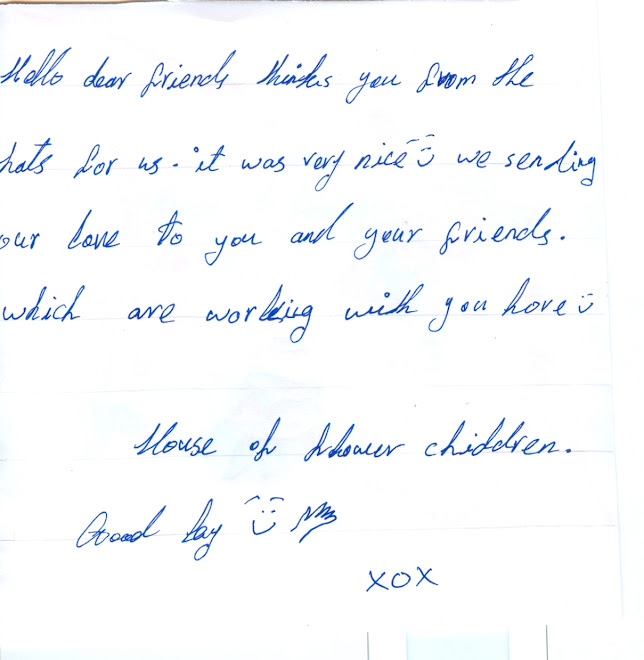 Hello dear friends thinks you from the
hats for us. it was very nice we sending
our love to you and your friends.
which are working with you hove
House of children.
Good day
XOX